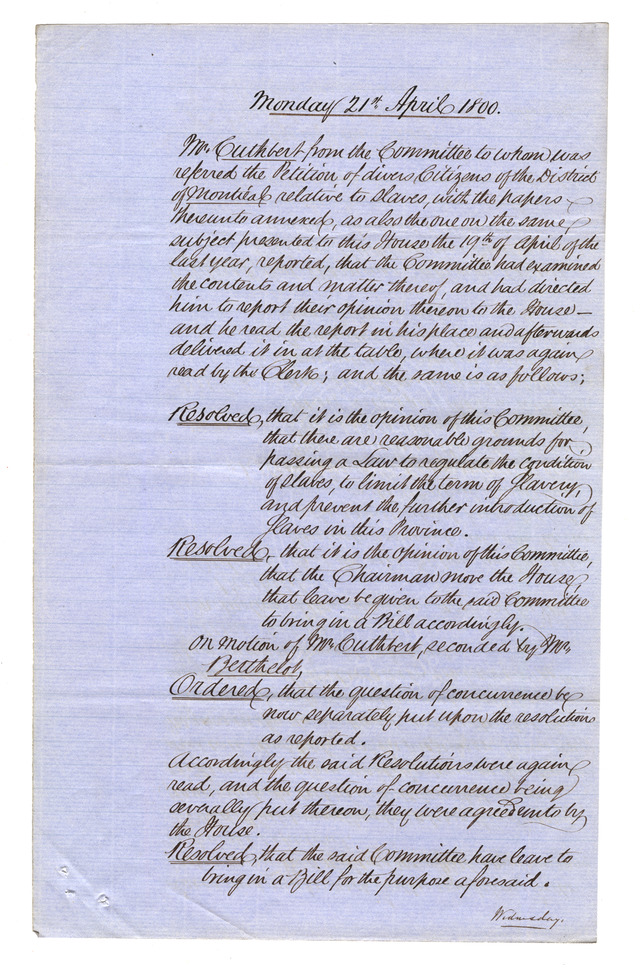 Monday 21st April 1800.
Mr. Cuthbert from the Committee to whom was
referred the Petition of divers Citizens of the District
of Montreal relative to slaves, with the papers
thereunto annexed, as also the one on the same
subject presented to this House the 19th of April of the
last year, reported, that the Committee had examined
the contents and matter thereof, and had directed
him to report their opinion thereon to the House —
and he read the report in his place and afterwards
delivered it in at the table, where it was again
read by the Clerk; and the same is as follows;
Resolved, that it is the opinion of this Committee,
that there are reasonable grounds for
passing a Law to regulate the condition
of slaves, to limit the term of Slavery,
and prevent the further introduction of
Slaves in this Province.
Resolved, that it is the opinion of this Committee,
that the Chairman move the House,
that leave be given to the said Committee
to bring in a Bill accordingly.
On motion of Mr. Cuthbert, seconded by Mr.
Berthelot,
Ordered, that the question of concurrence be
now separately put upon the resolutions
as reported.
Accordingly the said Resolutions were again
read, and the question of concurrence being
severally put thereon, they were agreed unto by
the House.
Resolved, that the said Committee have leave to
bring in a Bill for the purpose aforesaid.
Wednesday.